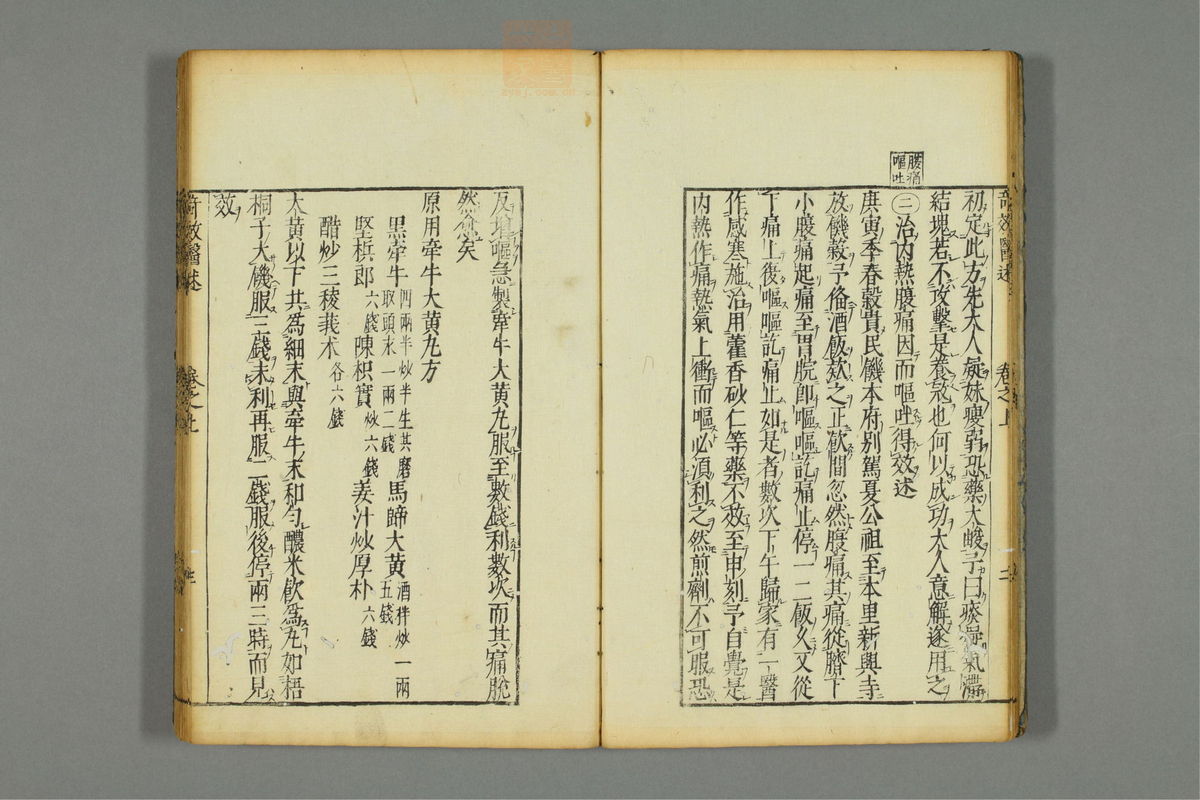 初定此方先大人疑妹瘦弱恐藥大峻予曰痰與氣滯
結塊若不攻擊是養寇也何以成功大人意解遂用之
腹痛
嘔吐
㊁治内熱腹痛因而嘔吐得效述
庚寅季春穀貴民饑本府別駕夏公祖至本里新興寺
放饑穀予俻酒飯欵之正飲間忽然腹痛其痛從臍下
小腹痛起痛至胃脘即嘔嘔訖痛止停一二飯久又從
下痛上復嘔嘔訖痛止如是者數次下午歸家有一醫
作感寒施治用藿香砂仁等藥不效至申刻予自覺是
内熱作痛熱氣上衝而嘔必須利之然煎劑不可服恐
反增嘔急製牽牛大黄丸服至數錢利數次而其痛脫
然愈矣
原用牽牛大黄丸方
黒牽牛四兩半炒半生共磨取頭末一兩二錢 馬蹄大黄酒拌炒一兩五錢
堅梹郎六錢 陳枳實炒六錢 姜汁炒厚朴六錢
醋炒三稜莪朮各六錢
大黄以下共為細末與牽牛末和勻醲米飲為丸如梧
桐子大饑服三錢未利再服二錢服後停兩三時而見
效
奇效醫述
卷之上
二